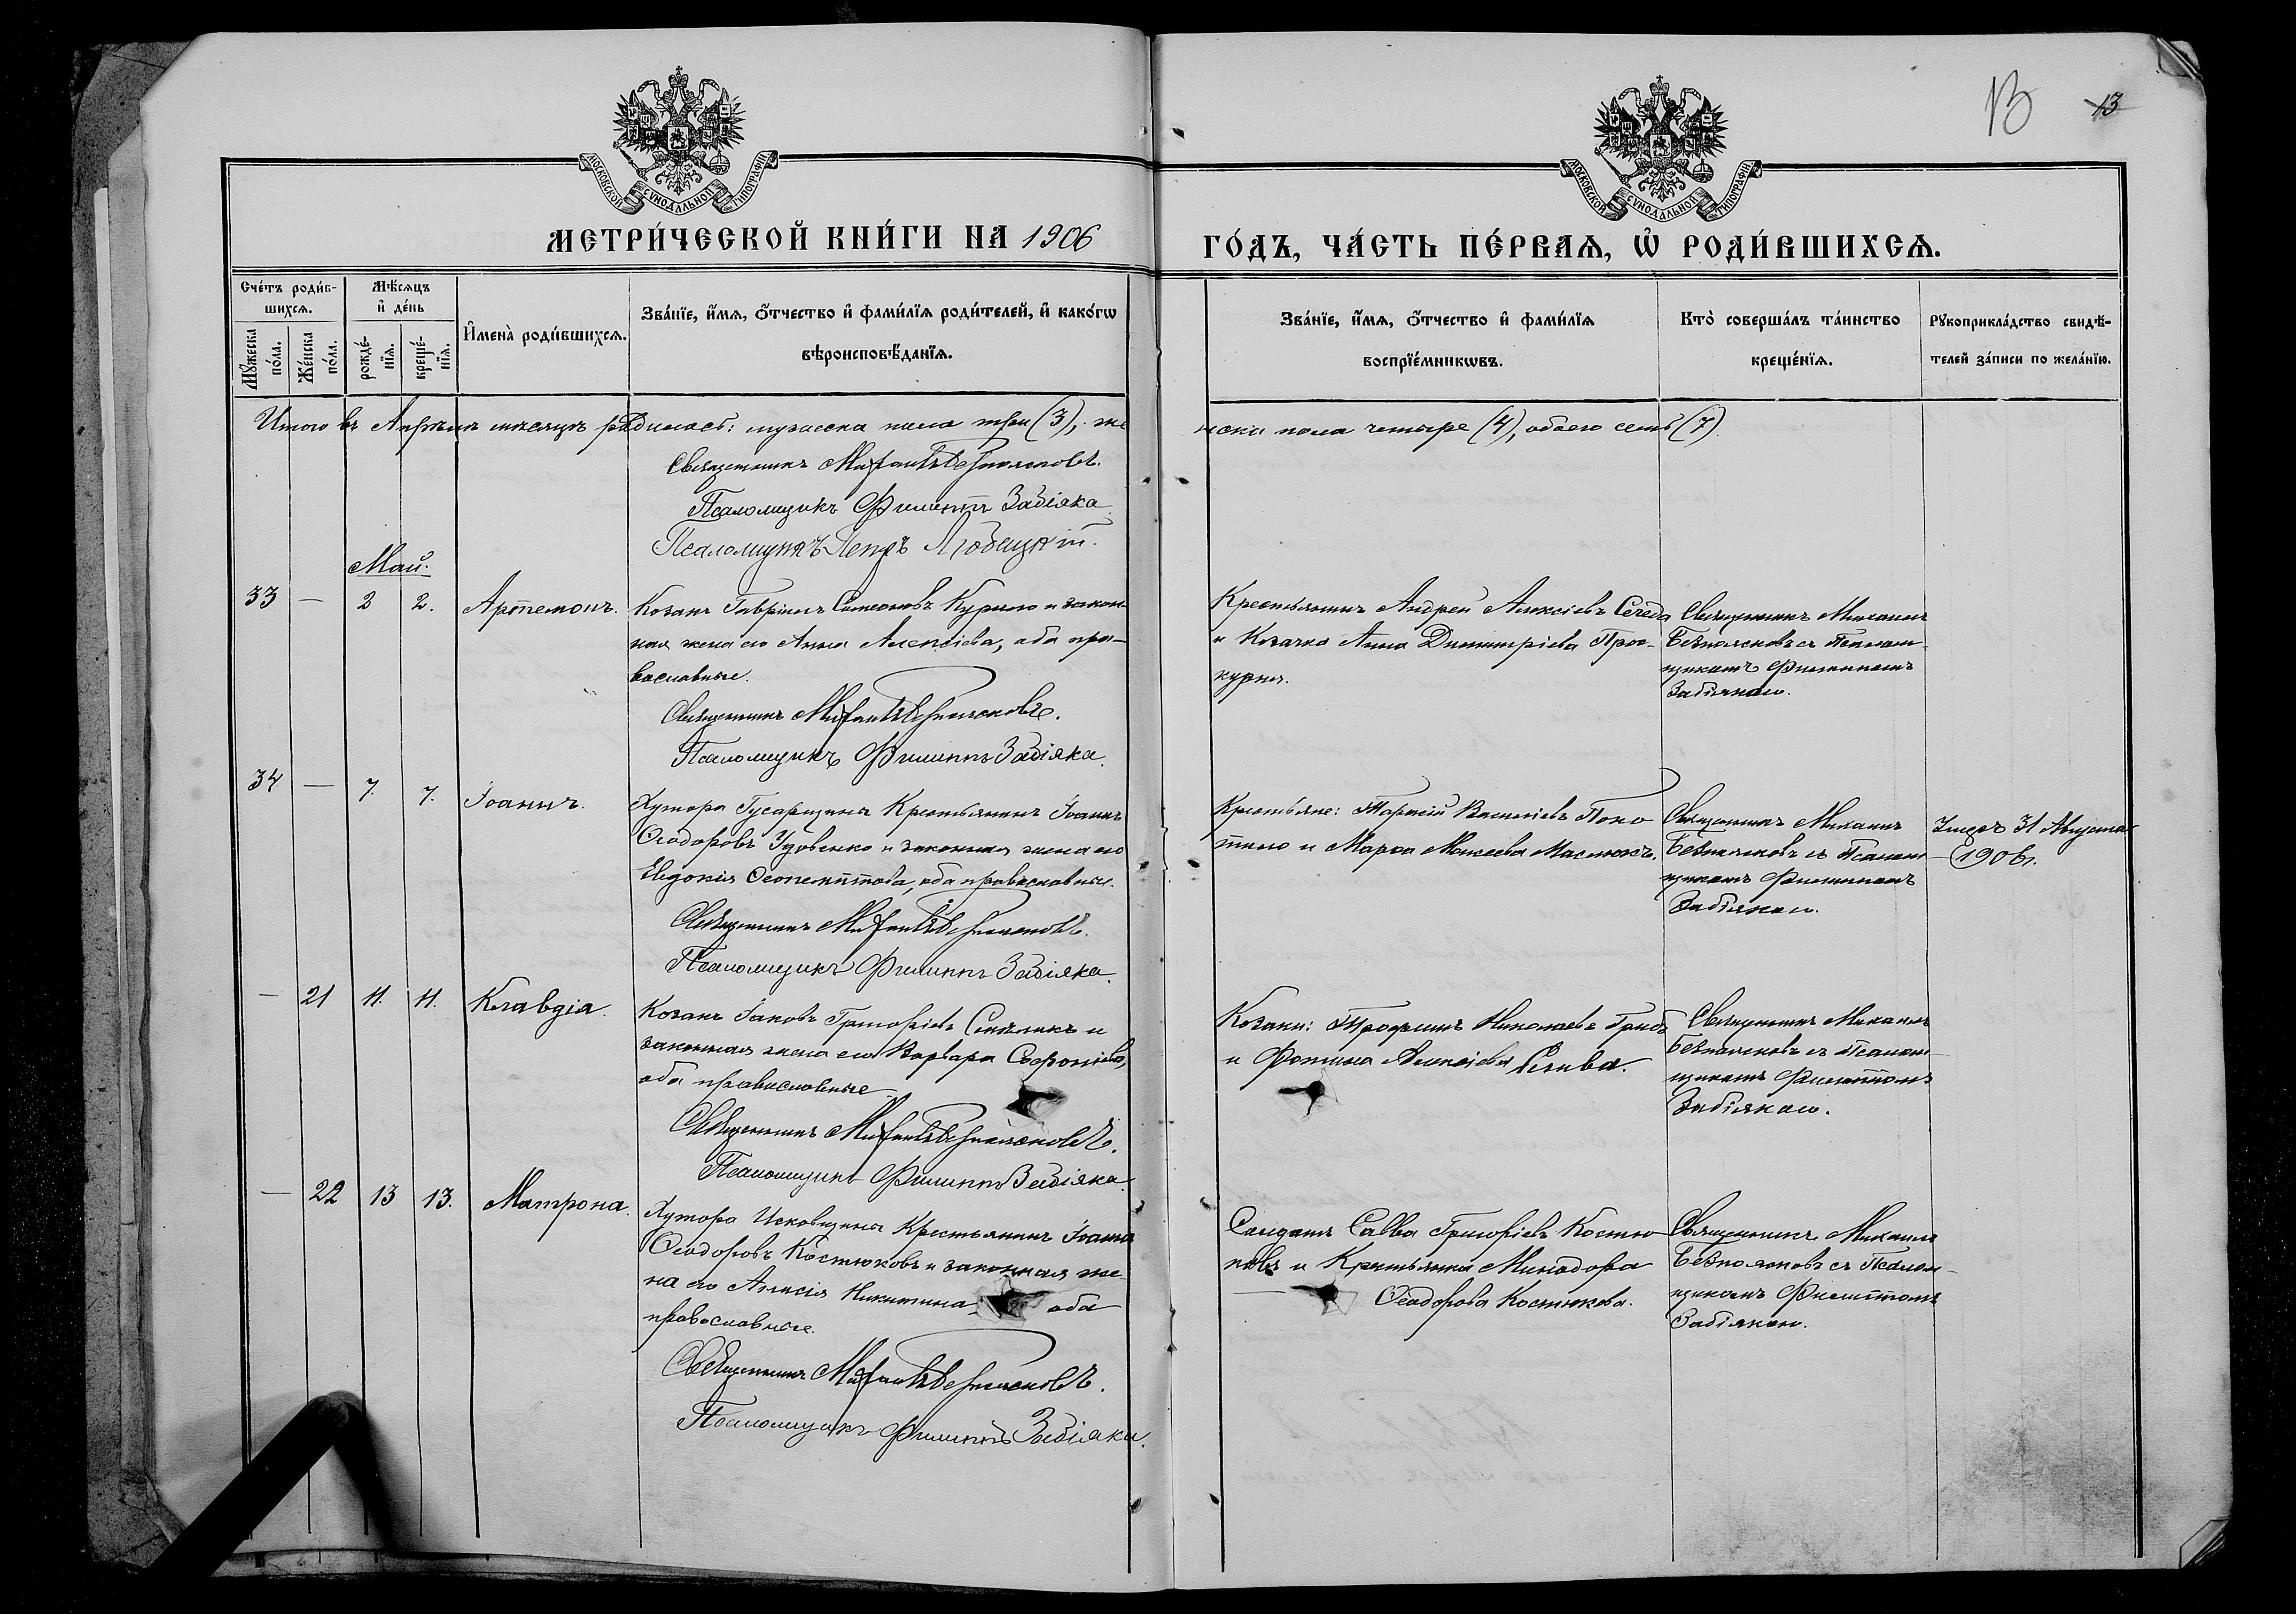 13 13
МОСКОВСКОЙ СУНОДАЛЬНОЙ ТИПОГРАФІИ
МОСКОВСКОЙ СУНОДАЛЬНОЙ ТИПОГРАФІИ
МЕТРИ́ЧЕСКОЙ КНИ́ГИ НА 1906
ГО́ДЪ, ЧА́СТЬ ПЕ́РВАѦ, Ѡ РОДИ́ВШИХСѦ.
Сче́тъ роди́в-
шихсѧ.
Мꙋ́жеска по́ла.
Же́нска по́ла.
Мѣ́сѧцъ
и де́нь
рожде́-нїѧ.
креще́-нїѧ.
И҆мена̀ роди́вшихсѧ.
Зва́нїе, и҆́мѧ, ѻ҆́тчество и҆ фами́лїѧ роди́телей, и҆ како́гѡ
вѣроисповѣ́данїѧ.
Зва́нїе, и҆́мѧ, ѻ҆́тчество и҆ фами́лїѧ
воспрїе́мникѡвъ.
Кто̀ соверша́лъ та́инство
креще́нїѧ.
Рꙋкоприкла́дство свидѣ́-
телей за́писи по жела́нїю.
Итого въ Апрѣлѣ мѣсяцѣ родилось: мужеска пола три (3), же
нска пола четыре (4), обоего семь (7).
Священникъ Михаилъ Безпоясковъ.
Псаломщикъ Филиппъ Забіяка.
Псаломщикъ Петръ Любецкій.
Май.
33 — 2 2. Артемонъ.
Козакъ Гавріилъ Симеоновъ Курило и закон-
ная жена его Анна Алексіева, оба пра-
вославные.
Священникъ Михаилъ Безпоясковъ.
Псаломщикъ Филиппъ Забіяка.
Крестьянинъ Андрей Алексіевъ Середа
и Козачка Анна Димитріева Прос-
курня.
Священникъ Михаилъ
Безпоясковъ съ Псалом-
щикомъ Филиппомъ
Забіякою.
34 — 7. 7. Іоаннъ.
Хутора Гусарщина Крестьянинъ Іоаннъ
Ѳеодоровъ Удовенко и законная жена его
Евдокія Ѳеопемптова, оба православные.
Священникъ Михаилъ Безпоясковъ.
Псаломщикъ Филиппъ Забіяка.
Крестьяне: Тарасій Василіевъ Поко
тило и Марѳа Моисеева Маслюкъ.
Священникъ Михаилъ
Безпоясковъ съ Псалом
щикомъ Филиппомъ
Забіякою.
Умеръ 31 Августа
1906 г.
— 21 11. 11. Клавдія.
Козакъ Іаковъ Григоріевъ и
законная жена его Варвара Софроніева,
оба православные
Священникъ Михаилъ Безпоясковъ.
Псаломщикъ Филиппъ Забіяка.
Козаки: Трофимъ Николаевъ Грибъ
и Фотина Алексіева
Священникъ Михаилъ
Безпоясковъ съ Псалом-
щикомъ Филиппомъ
Забіякою.
— 22 13 13. Матрона.
Хутора Исковщина Крестьянинъ Іоаннъ
Ѳеодоровъ Костюковъ и законная же-
на его Алексія Никитина, оба
православные.
Священникъ Михаилъ Безпоясковъ.
Псаломщикъ Филиппъ Забіяка.
Солдатъ Савва Григоріевъ Костю
ковъ и Крестьянка Минодора
Ѳеодорова Костюкова.
Священникъ Михаилъ
Безпоясковъ съ Псалом-
щикомъ Филиппомъ
Забіякою.